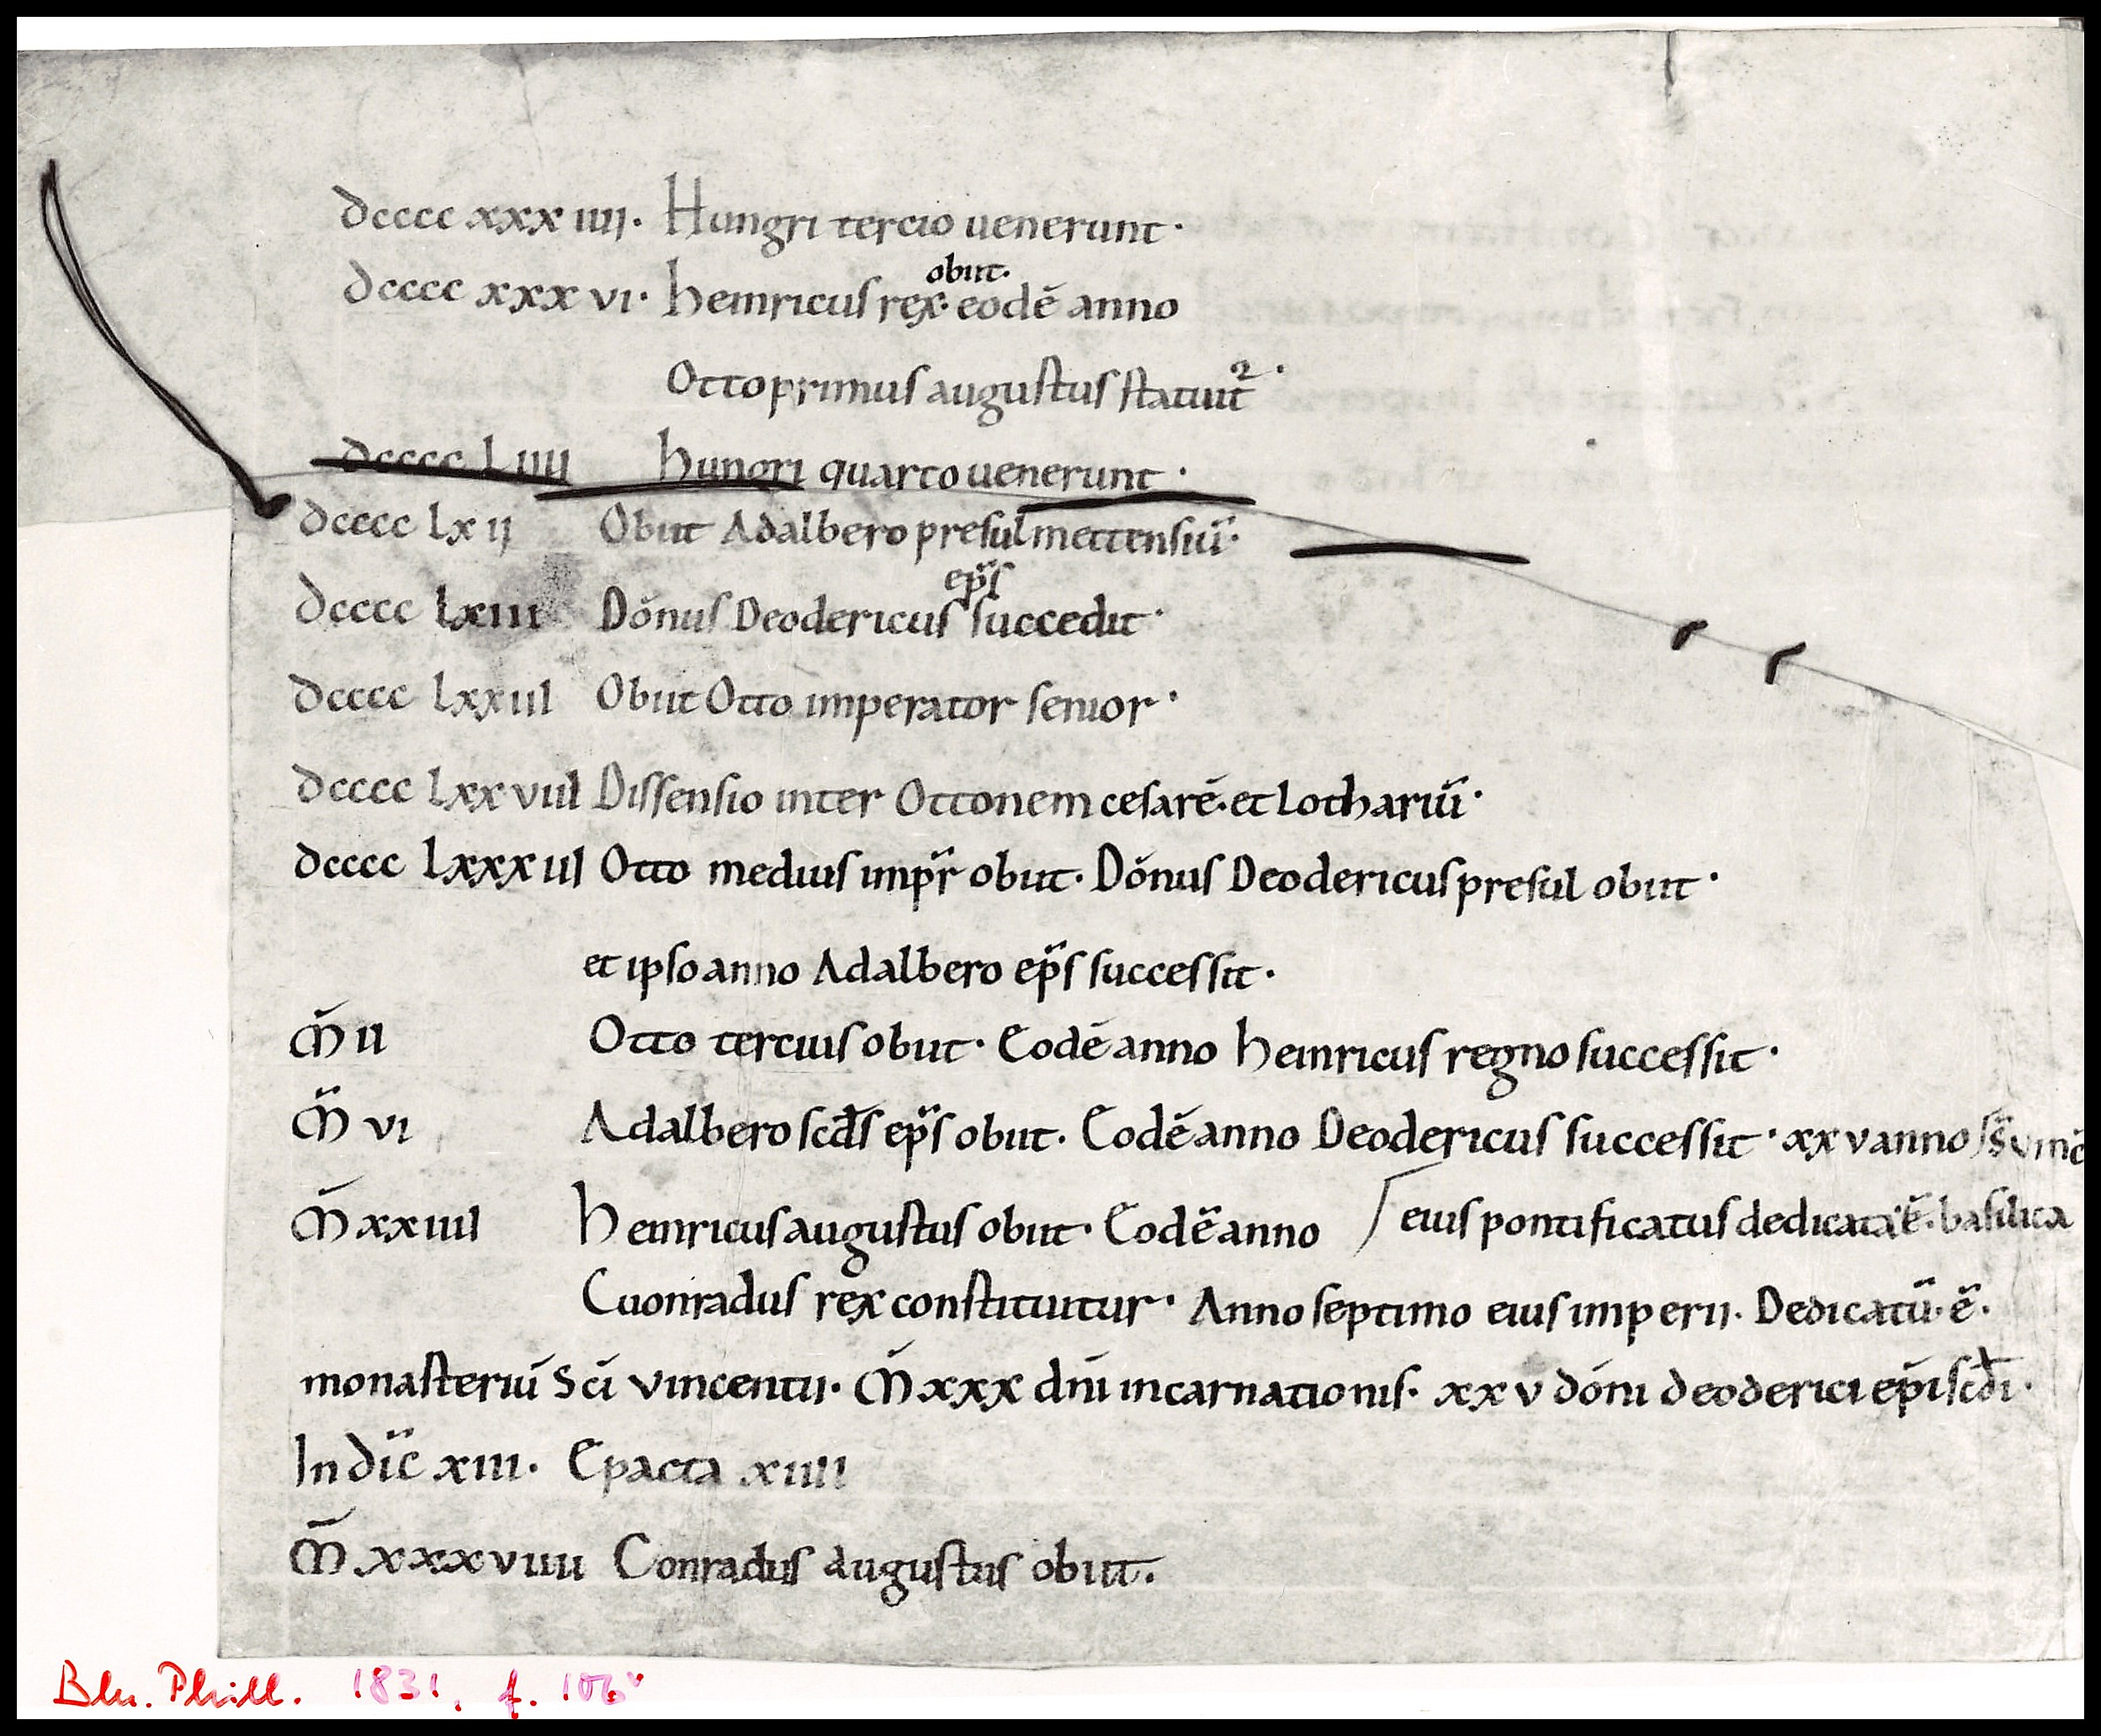 dcccc xxx iiij. Hungri tercio uenerunt.
obiit.
dcccc xxx vi. heinricus rex. eodē anno
Otto primus augustus statuit᷑.
dcccc Liiii hungri quarto uenerunt.
dcccc Lx ij Obiit Adalbero presul mettensiū.
ep̄s
dcccc Lxiii Dōnus Deodericus succedit.
dcccc Lxxiii Obiit Otto imperator senior.
dcccc Lxx viii Dissensio inter Ottonem cesarē. et Lothariū.
dcccc Lxxx iii Otto medius imp̄r obiit. Dōnus Deodericus presul obiit.
et ipso anno Adalbero ep̄s successit.
M̄ ii Otto tercius obiit. Eodē anno heinricus regno successit.
M̄ vi Adalbero scd̄s ep̄s obiit. Eodē anno Deodericus successit. xx v anno
M̄ xxiiii heinricus augustus obiit. Eodē anno eius pontificatus dedicata ē. basilica
Cuonradus rex constituitur. Anno septimo eius imperii. Dedicatū. ē.
monasteriū Sc̄i vincentii. M̄ xxx dn̄i incarnationis. xx v dōni deoderici ep̄i scd̄i.
Indic̄ xiii. Epacta xiiii
M̄ xxxviiii Conradus augustus obiit.
Bln. Phill. 1831, f. 106v